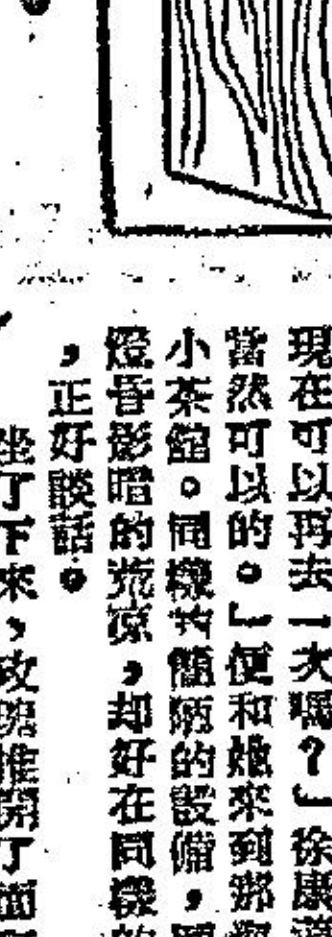 現在可以再去一次嗎？」徐康道
當然可以的。」便和她來到那
小茶館。同樣其簡陋的設備，
燈昏影暗的荒涼，却好在同樣的
，正好談話。
坐了下來，玫瑰推開了面